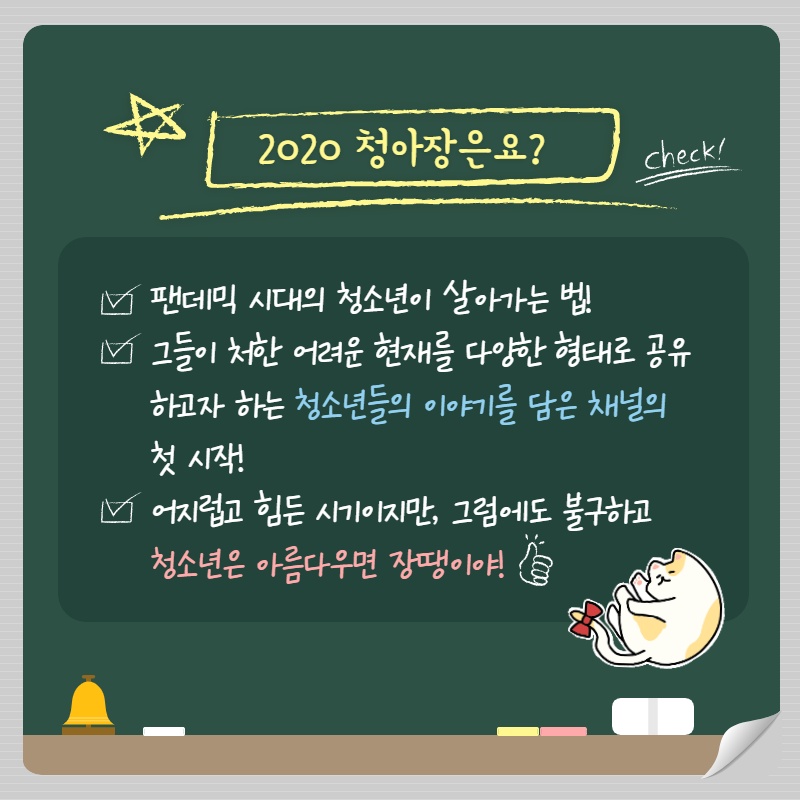 2020 청아장은요?
check!
팬데믹 시대의 청소년이 살아가는 법!
그들이 처한 어려운 현재를 다양한 형태로 공유
하고자 하는 청소년들의 이야기를 담은 채널의
첫 시작!
어지럽고 힘든 시기이지만, 그럼에도 불구하고
청소년은 아름다우면 장땡이야!